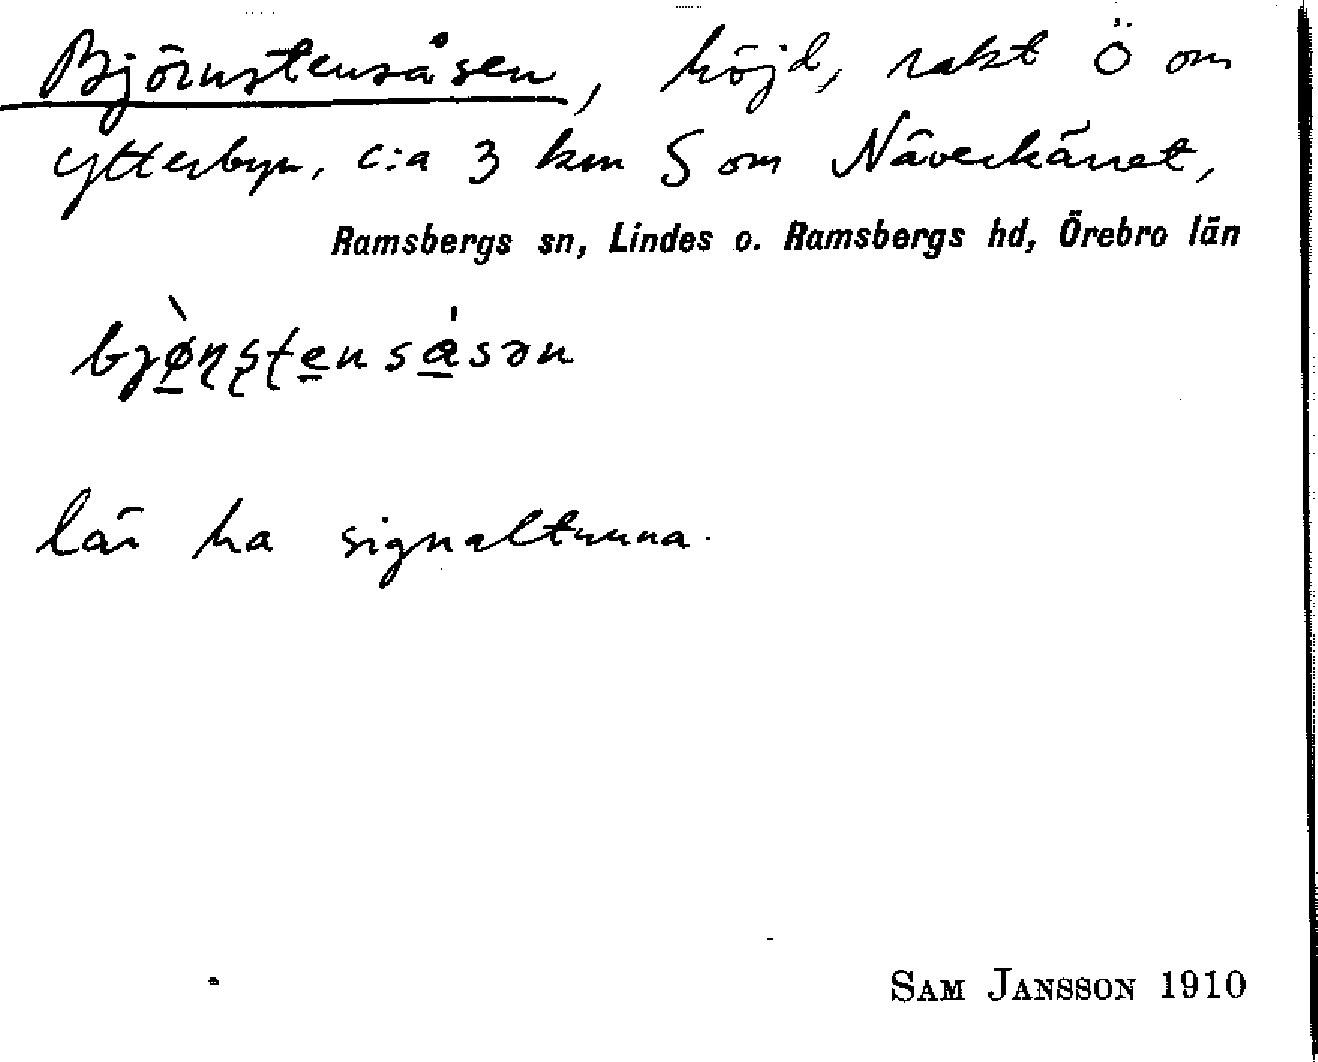 Björnstensåsen, höjd, rakt Ö om
Ytterbyn, c:a 3 km S om Näverkärret,
Ramsbergs sn, Lindes o. Ramsbergs hd, Örebro län
bjø̠̀ɳʂʈe̠nsǻ̠sən
lär ha signaltunna.
SAM JANSSON 1910